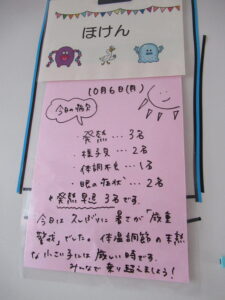 ほけん
10月6日(月)
今日の病欠
・発熱…3名
・様子見…2名
・体調不良…1名
・眼の症状…2名
*発熱早退 3名です。
今日は久しぶりに暑さが「厳重
警戒」でした。体温調節の未熟
な小さい子には厳しい時です。
みんなで乗り越えましょう!